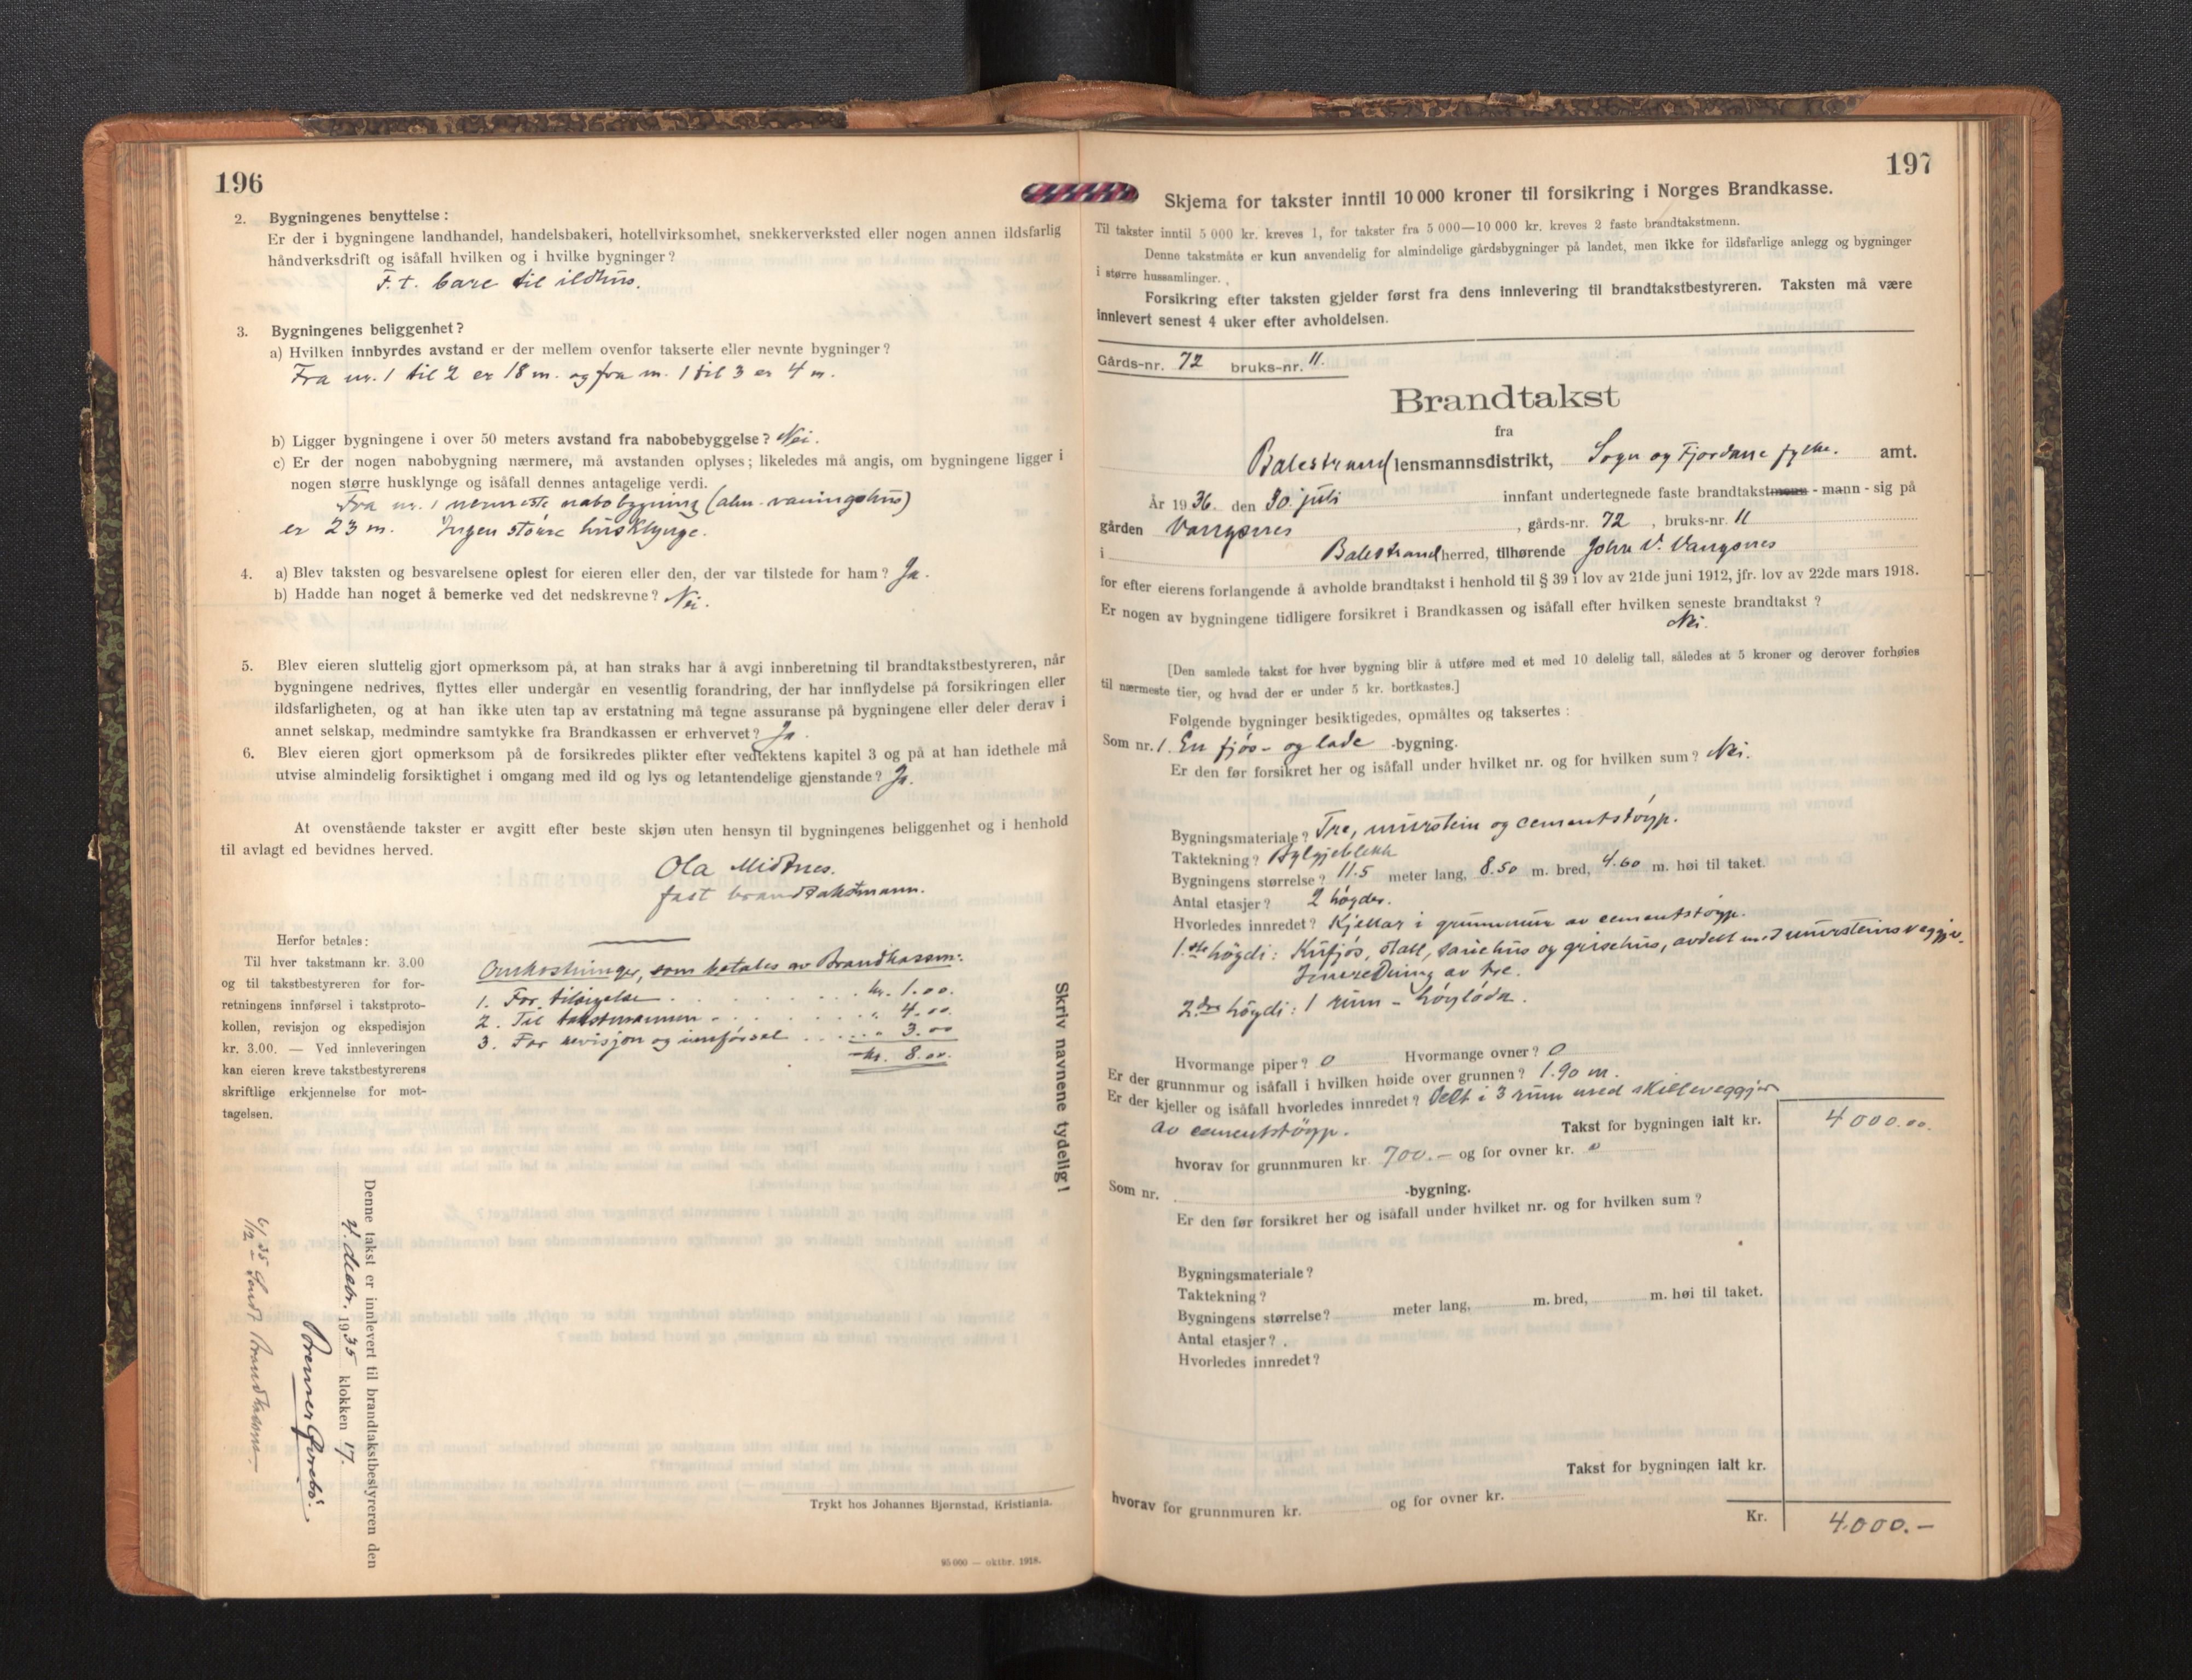 196
2. Bygningenes benyttelse :
Er der i bygningene landhandel, handelsbakeri, hotellvirksomhet, snekkerverksted eller nogen annen ildsfarlig
håndverksdrift og isåfall hvilken og i hvilke bygninger ?
F. t. bare til ildhus.
3. Bygningenes beliggenhet ?
a) Hvilken innbyrdes avstand er der mellem ovenfor takserte eller nevnte bygninger ?
Fra nr. 1 til 2 er 18 m. og fra nr. 1 til 3 er 4 m.
b) Ligger bygningene i over 50 meters avstand fra nabobebyggelse ? Nei.
c) Er der nogen nabobygning nærmere, må avstanden oplyses ; likeledes må angis, om bygningene ligger i
nogen større husklynge og isåfall dennes antagelige verdi.
Fra nr. 1 nærmeste nabobygning (alm. vaningshus)
er 23 m. Ingen større husklynge.
4. a) Blev taksten og besvarelsene oplest for eieren eller den, der var tilstede for ham ? Ja.
b) Hadde han noget å bemerke ved det nedskrevne ? Nei.
5. Blev eieren sluttelig gjort opmerksom på, at han straks har å avgi innberetning til brandtakstbestyreren, når
bygningene nedrives, flyttes eller undergår en vesentlig forandring, der har innflydelse på forsikringen eller
ildsfarligheten, og at han ikke uten tap av erstatning må tegne assuranse på bygningene eller deler derav i
annet selskap, medmindre samtykke fra Brandkassen er erhvervet ? Ja.
6. Blev eieren gjort opmerksom på de forsikredes plikter efter vedtektens kapitel 3 og på at han idethele må
utvise almindelig forsiktighet i omgang med ild og lys og letantendelige gjenstande ? Ja.
At ovenstående takster er avgitt efter beste skjøn uten hensyn til bygningenes beliggenhet og i henhold
til avlagt ed bevidnes herved.
Ola Midtnes.
fast brandtakstmann.
Herfor betales :
Til hver takstmann kr. 3.00
og til takstbestyreren for for-
retningens innførsel i takstproto-
kollen, revisjon og ekspedisjon
kr. 3.00. — Ved innleveringen
kan eieren kreve takstbestyrerens
skriftlige erkjennelse for mot-
tagelsen.
Omkostninger, som betales av Brandkassen:
1. For tilsigelse . . . . kr. 1.00.
2. Til takstmannen . . . . " 4.00.
3. For revisjon og innførsel . . . . " 3.00
kr. 8.00.
Skriv navnene tydelig !
Denne takst er innlevert til brandtakstbestyreren den
4. decbr. 1935 klokken 17.
6/12 - 35 Sendt Brandkassen.
Trykt hos Johannes Bjørnstad, Kristiania.
95 000 — oktbr. 1918.
197
Skjema for takster inntil 10 000 kroner til forsikring i Norges Brandkasse.
Til takster inntil 5 000 kr. kreves 1, for takster fra 5 000—10 000 kr. kreves 2 faste brandtakstmenn.
Denne takstmåte er kun anvendelig for almindelige gårdsbygninger på landet, men ikke for ildsfarlige anlegg og bygninger
i større hussamlinger.
Forsikring efter taksten gjelder først fra dens innlevering til brandtakstbestyreren. Taksten må være
innlevert senest 4 uker efter avholdelsen.
Gårds-nr. 72 bruks-nr. 11.
Brandtakst
fra
Balestrand lensmannsdistrikt, Sogn og Fjordane fylke. amt.
År 1936. den 30. juli innfant undertegnede faste brandtakstmenn - mann - sig på
gården Vangsnes , gårds-nr. 72 , bruks-nr. 11
i Balestrand herred, tilhørende John V. Vangsnes
for efter eierens forlangende å avholde brandtakst i henhold til § 39 i lov av 21de juni 1912, jfr. lov av 22de mars 1918.
Er nogen av bygningene tidligere forsikret i Brandkassen og isåfall efter hvilken seneste brandtakst ?
Nei.
[Den samlede takst for hver bygning blir å utføre med et med 10 delelig tall, således at 5 kroner og derover forhøies
til nærmeste tier, og hvad der er under 5 kr. bortkastes.]
Følgende bygninger besiktigedes, opmåltes og taksertes :
Som nr. 1. En fjøs- og lade -bygning.
Er den før forsikret her og isåfall under hvilket nr. og for hvilken sum ? Nei.
Bygningsmateriale ? Tre, murstein og cementstøyp.
Taktekning ? Bylgjeblekk
Bygningens størrelse ? 11.5 meter lang, 8.50 m. bred, 4.60 m. høi til taket.
Antal etasjer ? 2 høgder.
Hvorledes innredet ? Kjellar i grunnmur av cementstøyp.
1.ste høgdi: Kufjøs, stall, sauehus og grisehus, avdelt med mursteinsveggjer.
Innreduing av tre.
2.dre høgdi: 1 rum - høyløda.
Hvormange piper ? 0 Hvormange ovner ? 0
Er der grunnmur og isåfall i hvilken høide over grunnen ? 1.90 m.
Er der kjeller og isåfall hvorledes innredet ? Delt i 3 rum med skilleveggjer
av cementstøyp.
Takst for bygningen ialt kr. 4000.00.
hvorav for grunnmuren kr. 700.— og for ovner kr. 0
Som nr. -bygning.
Er den før forsikret her og isåfall under hvilket nr. og for hvilken sum ?
Bygningsmateriale ?
Taktekning ?
Bygningens størrelse ? meter lang, m. bred, m. høi til taket.
Antal etasjer ?
Hvorledes innredet ?
Takst for bygningen ialt kr.
hvorav for grunnmuren kr. og for ovner kr.
Kr. 4.000.—